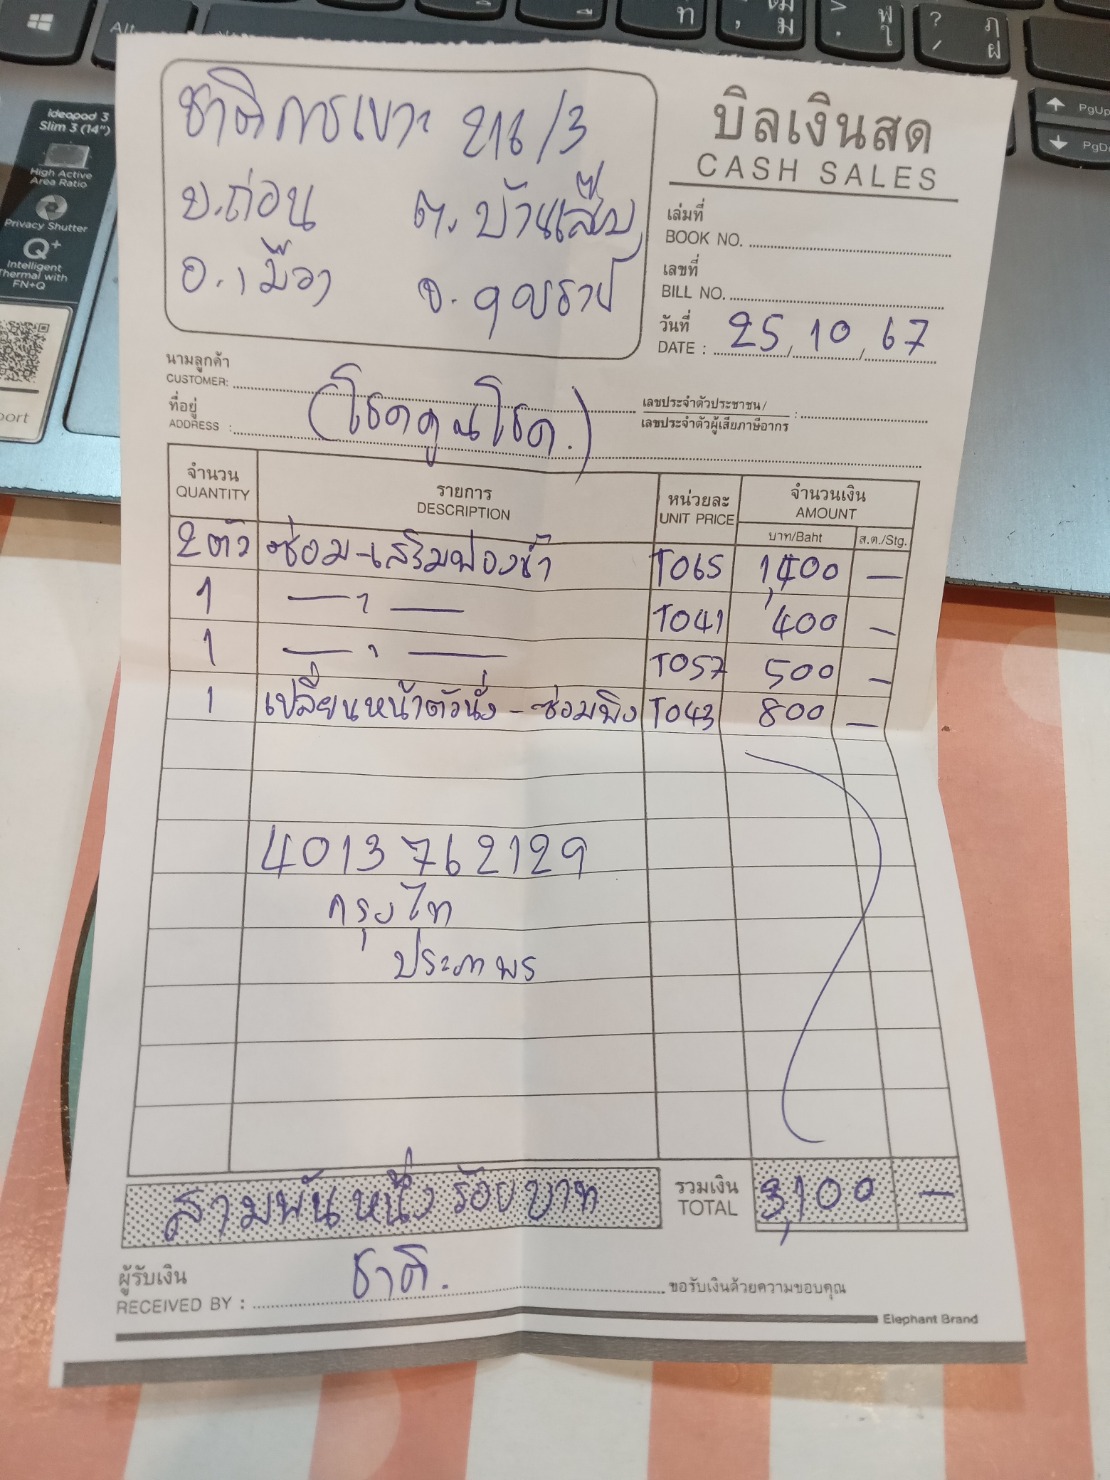 Alt
PgUp
PgDn
ideapad 3
Slim 3 (14")
High Active
Area Ratio
Privacy Shutter
Q+
Intelligent
Thermal with
FN+Q
port
ชาติการเบาะ 216/3
บ.ถ่อน ต.บ้านเลื่อม
อ.เมือง จ.อุดรธานี
บิลเงินสด
CASH SALES
เล่มที่
BOOK NO.
เลขที่
BILL NO.
วันที่
DATE : 25, 10, 67
นามลูกค้า
CUSTOMER:
ที่อยู่
ADDRESS :
(โชคคูณโชค.)
เลขประจำตัวประชาชน/
เลขประจำตัวผู้เสียภาษีอากร :
จำนวน รายการ หน่วยละ จำนวนเงิน
QUANTITY DESCRIPTION UNIT PRICE AMOUNT
บาท/Baht ส.ต./Stg.
2 ตัว ซ่อม-เสริมฟองน้ำ T065 1,400 —
1 — " — T041 400 —
1 — " — T057 500 —
1 เปลี่ยนหน้าตัวนั่ง - ซ่อมพิง T043 800 —
4013762129
กรุงไท
ประภาพร
สามพันหนึ่งร้อยบาท
รวมเงิน
TOTAL 3,100 —
ผู้รับเงิน
RECEIVED BY : ชาติ.
ขอรับเงินด้วยความขอบคุณ
Elephant Brand